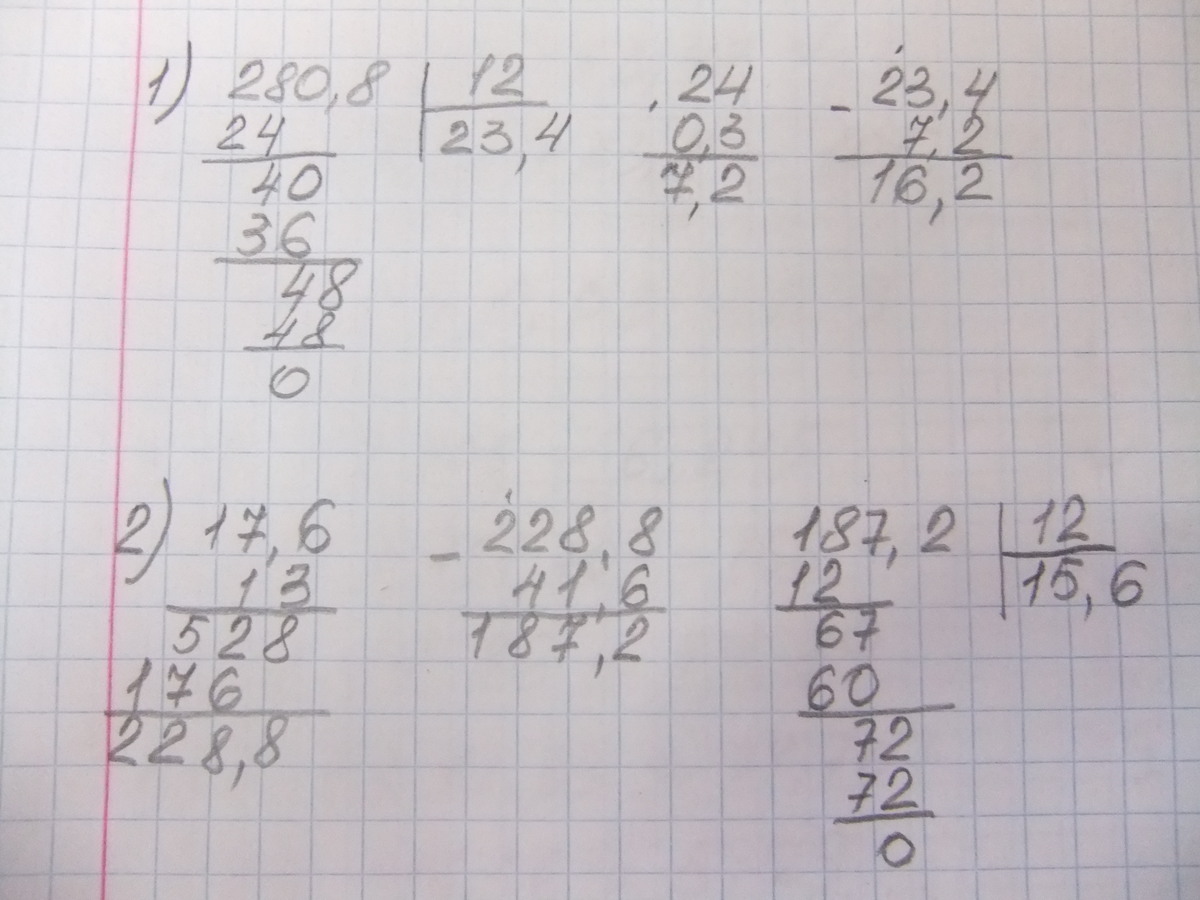 1) 280,8 | 12 . 24 - 23,4
24 23,4 0,3 7,2
40 7,2 16,2
36
48
48
0
2) 17,6 - 228,8 187,2 | 12
13 41,6 12 15,6
528 187,2 67
176 60
228,8 72
72
0